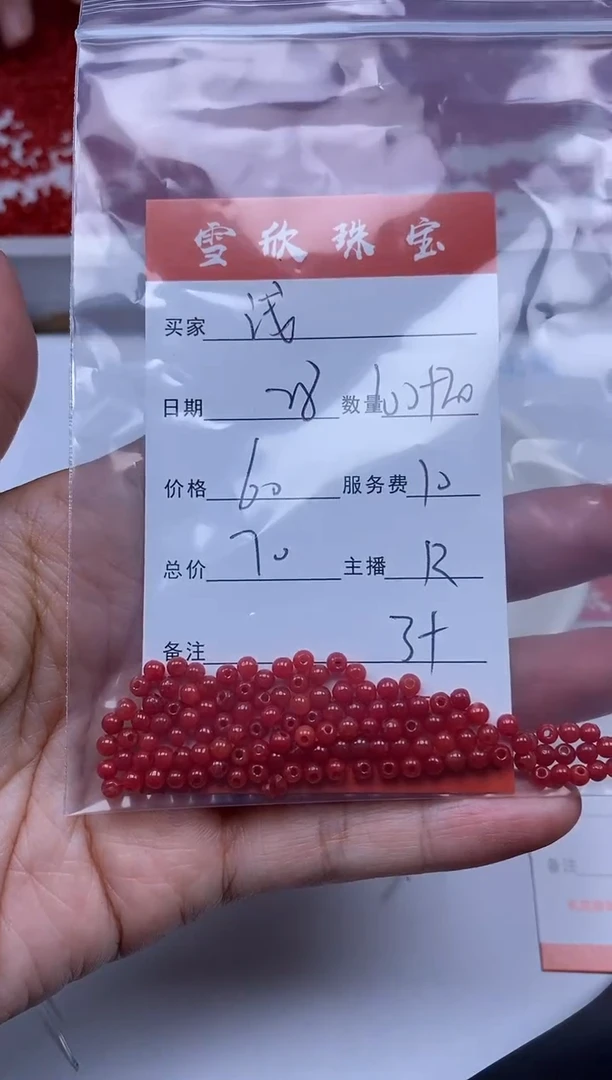 雪欣珠宝
买家 浅
日期 28 数量 100+20
价格 60 服务费 10
总价 70 主播 R
备注 3+
备注